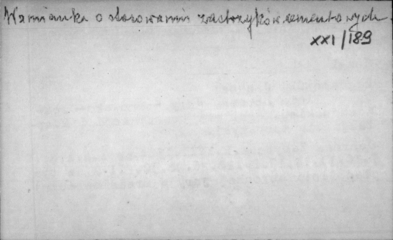 Wzmianka o stosowaniu zastrzyków cementowych
XXI/189